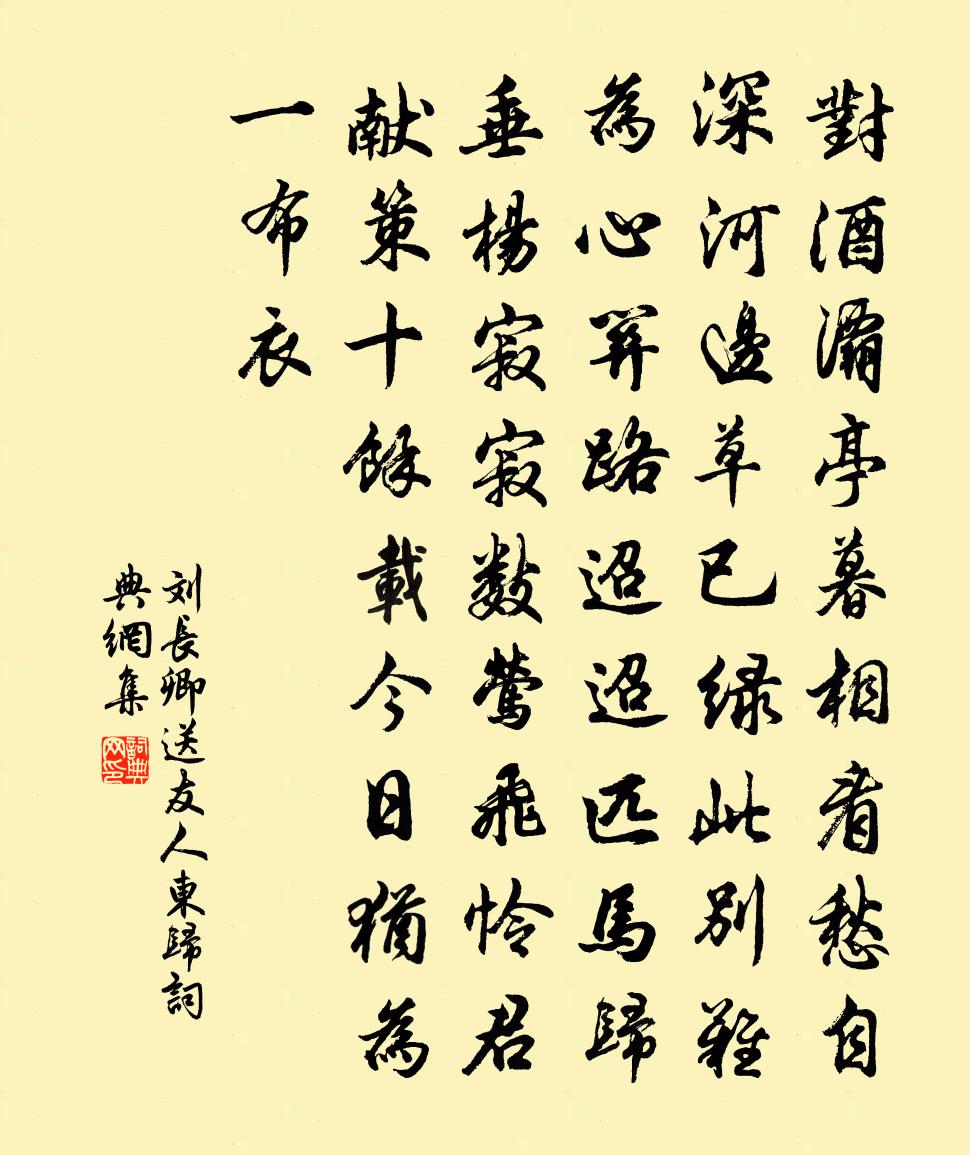 對酒灞亭暮相看愁自
深河邊草已綠此別難
為心關路迢迢匹馬歸
垂楊寂寂數鶯飛憐君
献策十餘載今日猶為
一布衣
刘長卿送友人東歸詞
典網集
詞典
网印